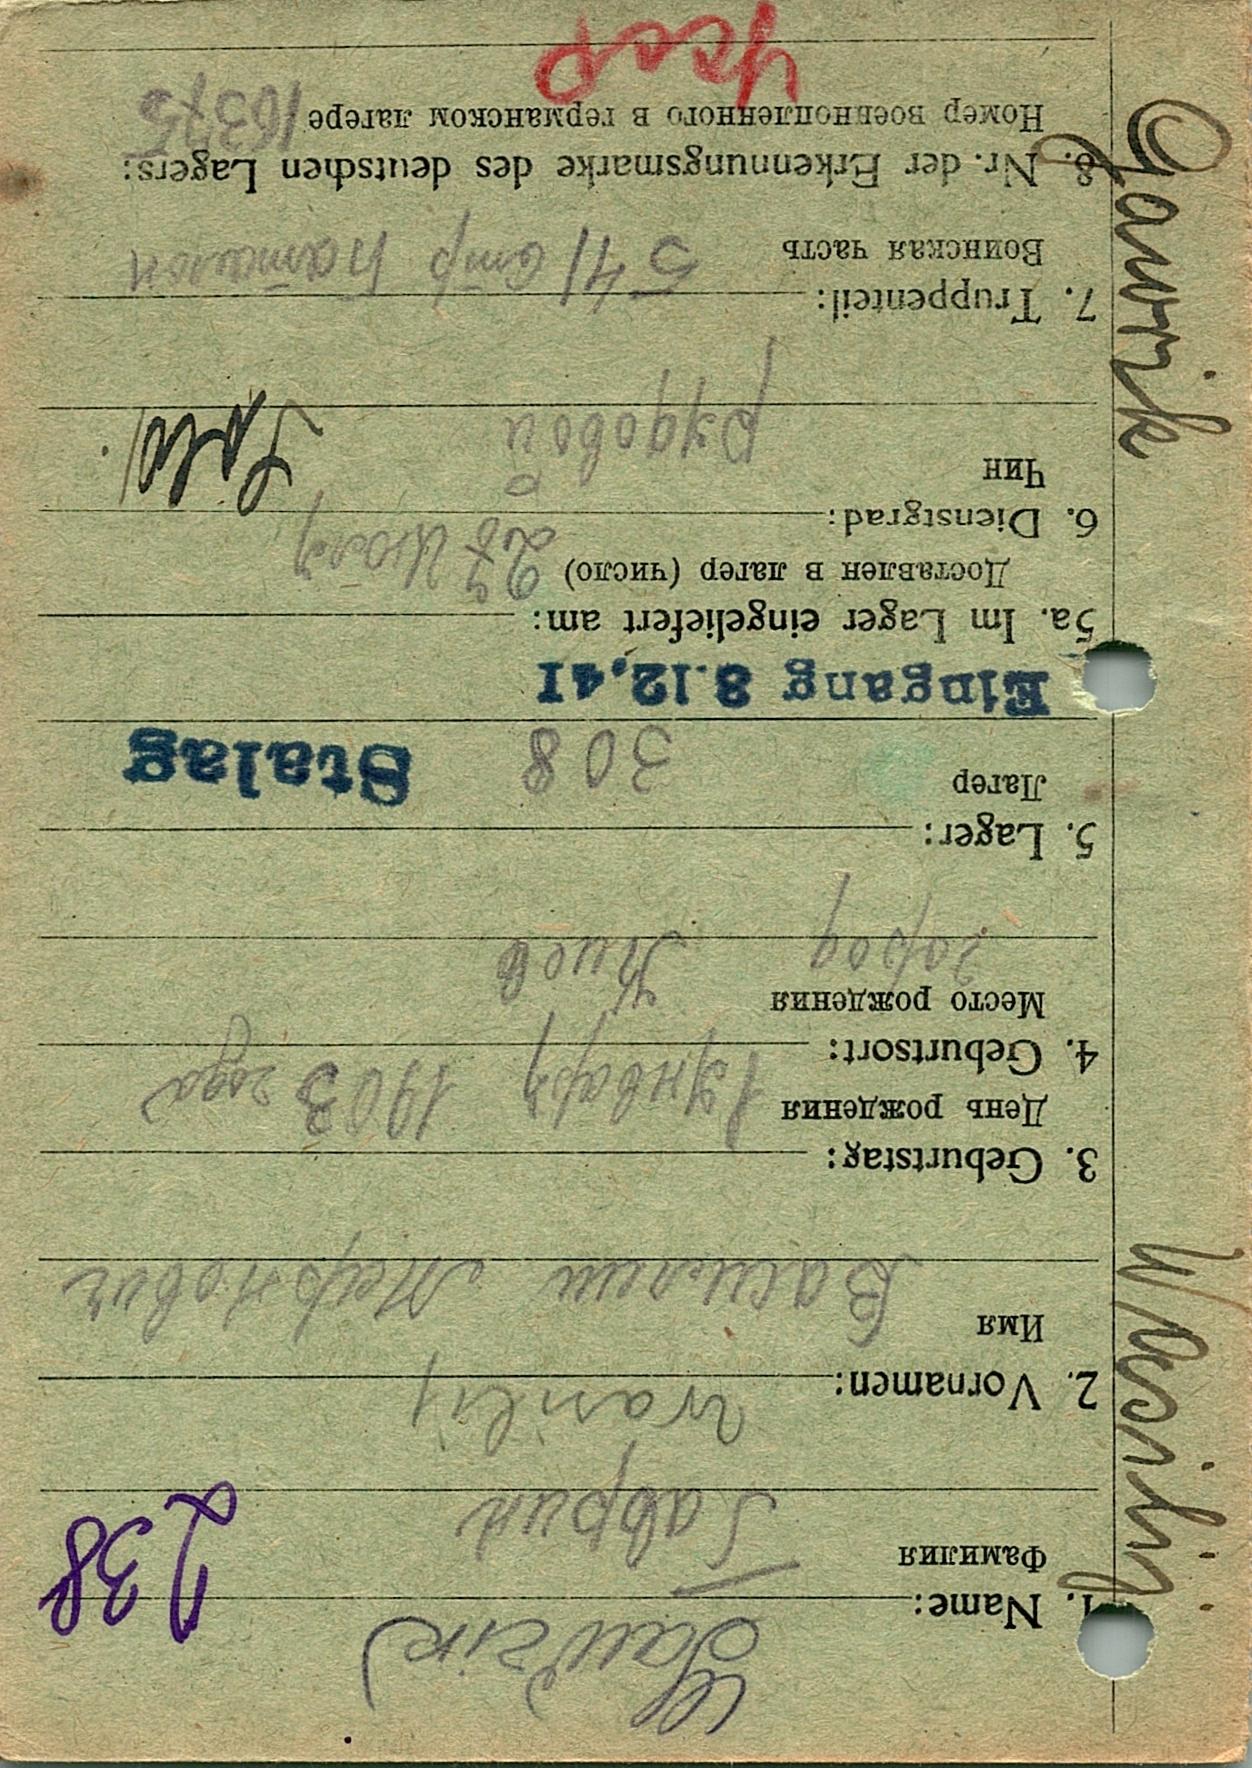 Gawrik
1. Name:
Фамилия Гаврик
238
wasilij
2. Vornamen:
Имя Василии
3. Geburtstag:
День рождения 1 января 1903 года
4. Geburtsort:
Место рождения
город Киев
5. Lager:
Лагер 308 Stalag
Eingang 8.12.41
5a. Im Lager eingeliefert am:
Доставлен в лагер (число) 27 Июля
28
6. Dienstgrad:
Чин рядовой
Sold.
7. Truppenteil:
Воинская часть 541 стр баталион
8. Nr. der Erkennungsmarke des deutschen Lagers:
Номер военнопленного в германском лагере 16375
УССР
Wasilij Gawrik